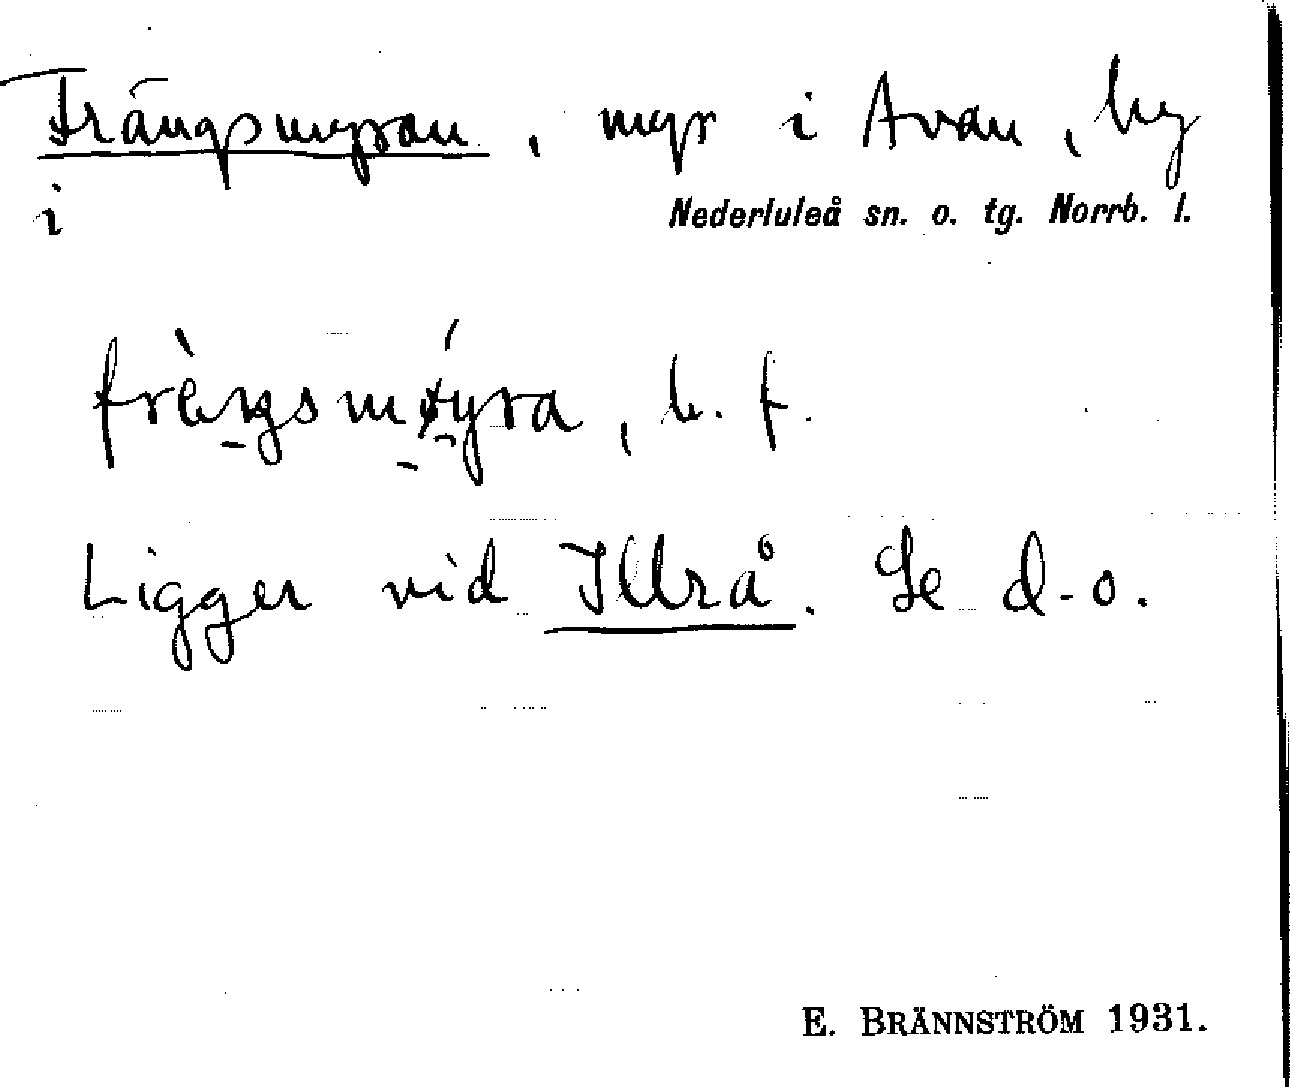 Trängsmyran, myr i Avan, by
i Nederluleå sn. o. tg. Norrb. l.
b. f.
Ligger vid Illrå. Se d-o.
E. BRÄNNSTRÖM 1931.